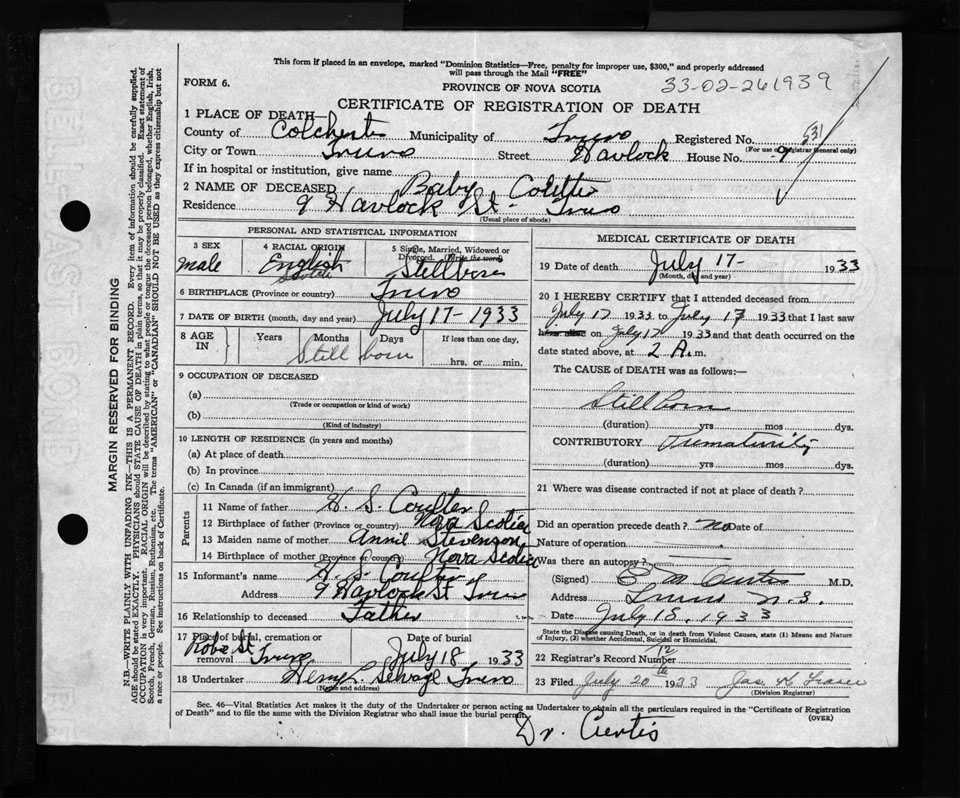 This form if placed in an envelope, marked "Dominion Statistics—Free, penalty for improper use, $300," and properly addressed
will pass through the Mail "FREE"
33-02-261939
FORM 6.
PROVINCE OF NOVA SCOTIA
CERTIFICATE OF REGISTRATION OF DEATH
1 PLACE OF DEATH—
County of Colchester Municipality of Truro Registered No. 531
(For use of Registrar General only)
City or Town Truro Street Havlock House No. 9
If in hospital or institution, give name
2 NAME OF DECEASED Baby
Residence 9 Havlock St Truro
(Usual place of abode)
PERSONAL AND STATISTICAL INFORMATION
3 SEX male
4 RACIAL ORIGIN English
5 Single, Married, Widowed or Divorced. (Write the word) Stillborn
6 BIRTHPLACE (Province or country) Truro
7 DATE OF BIRTH (month, day and year) July 17-1933
8 AGE IN Years Months Days If less than one day,
Still born hrs. or min.
9 OCCUPATION OF DECEASED
(a)
(Trade or occupation or kind of work)
(b)
(Kind of industry)
10 LENGTH OF RESIDENCE (in years and months)
(a) At place of death
(b) In province
(c) In Canada (if an immigrant)
Parents
11 Name of father H. S. Coulter
12 Birthplace of father (Province or country) Nova Scotia
13 Maiden name of mother Annie Stevenson
14 Birthplace of mother (Province or country) Nova Scotia
15 Informant's name H. S. Coulter
Address 9 Havlock St Truro
16 Relationship to deceased Father
17 Place of burial, cremation or removal Robie St Truro
Date of burial July 18 1933
18 Undertaker Selvage Truro
(Name and address)
MEDICAL CERTIFICATE OF DEATH
19 Date of death July 17- 1933
(Month, day and year)
20 I HEREBY CERTIFY that I attended deceased from
July 17 1933 to July 17 1933 that I last saw
on July 17 1933 and that death occurred on the
date stated above, at 2 A. m.
The CAUSE of DEATH was as follows:—
Still born
(duration) yrs mos dys.
CONTRIBUTORY Prematurity
(duration) yrs mos dys.
21 Where was disease contracted if not at place of death?
Did an operation precede death? no Date of
Nature of operation
Was there an autopsy?
(Signed) E M Curtis M.D.
Address Truro N.S.
Date July 18, 1933
State the Disease causing Death, or in death from Violent Causes, state (1) Means and Nature
of Injury, (2) whether Accidental, Suicidal or Homicidal.
22 Registrar's Record Number 72
23 Filed July 20th 1933 Jas. K Fraser
(Division Registrar)
Sec. 46—Vital Statistics Act makes it the duty of the Undertaker or person acting as Undertaker to obtain all the particulars required in the "Certificate of Registration
of Death" and to file the same with the Division Registrar who shall issue the burial permit.
(OVER)
Dr. Curtis
MARGIN RESERVED FOR BINDING
N.B.—WRITE PLAINLY WITH UNFADING INK—THIS IS A PERMANENT RECORD. Every item of information should be carefully supplied.
AGE should be stated EXACTLY. PHYSICIANS should STATE CAUSE OF DEATH in plain terms, so that it may be properly classified. Exact statement of
OCCUPATION is very important. RACIAL ORIGIN will be described by stating to what people or tongue the deceased person belonged, whether English, Irish,
Scotch, French, German, Russian, Ruthenian, etc. The terms "AMERICAN" or "CANADIAN" SHOULD NOT BE USED as they express citizenship but not
a race or people. See instructions on back of Certificate.